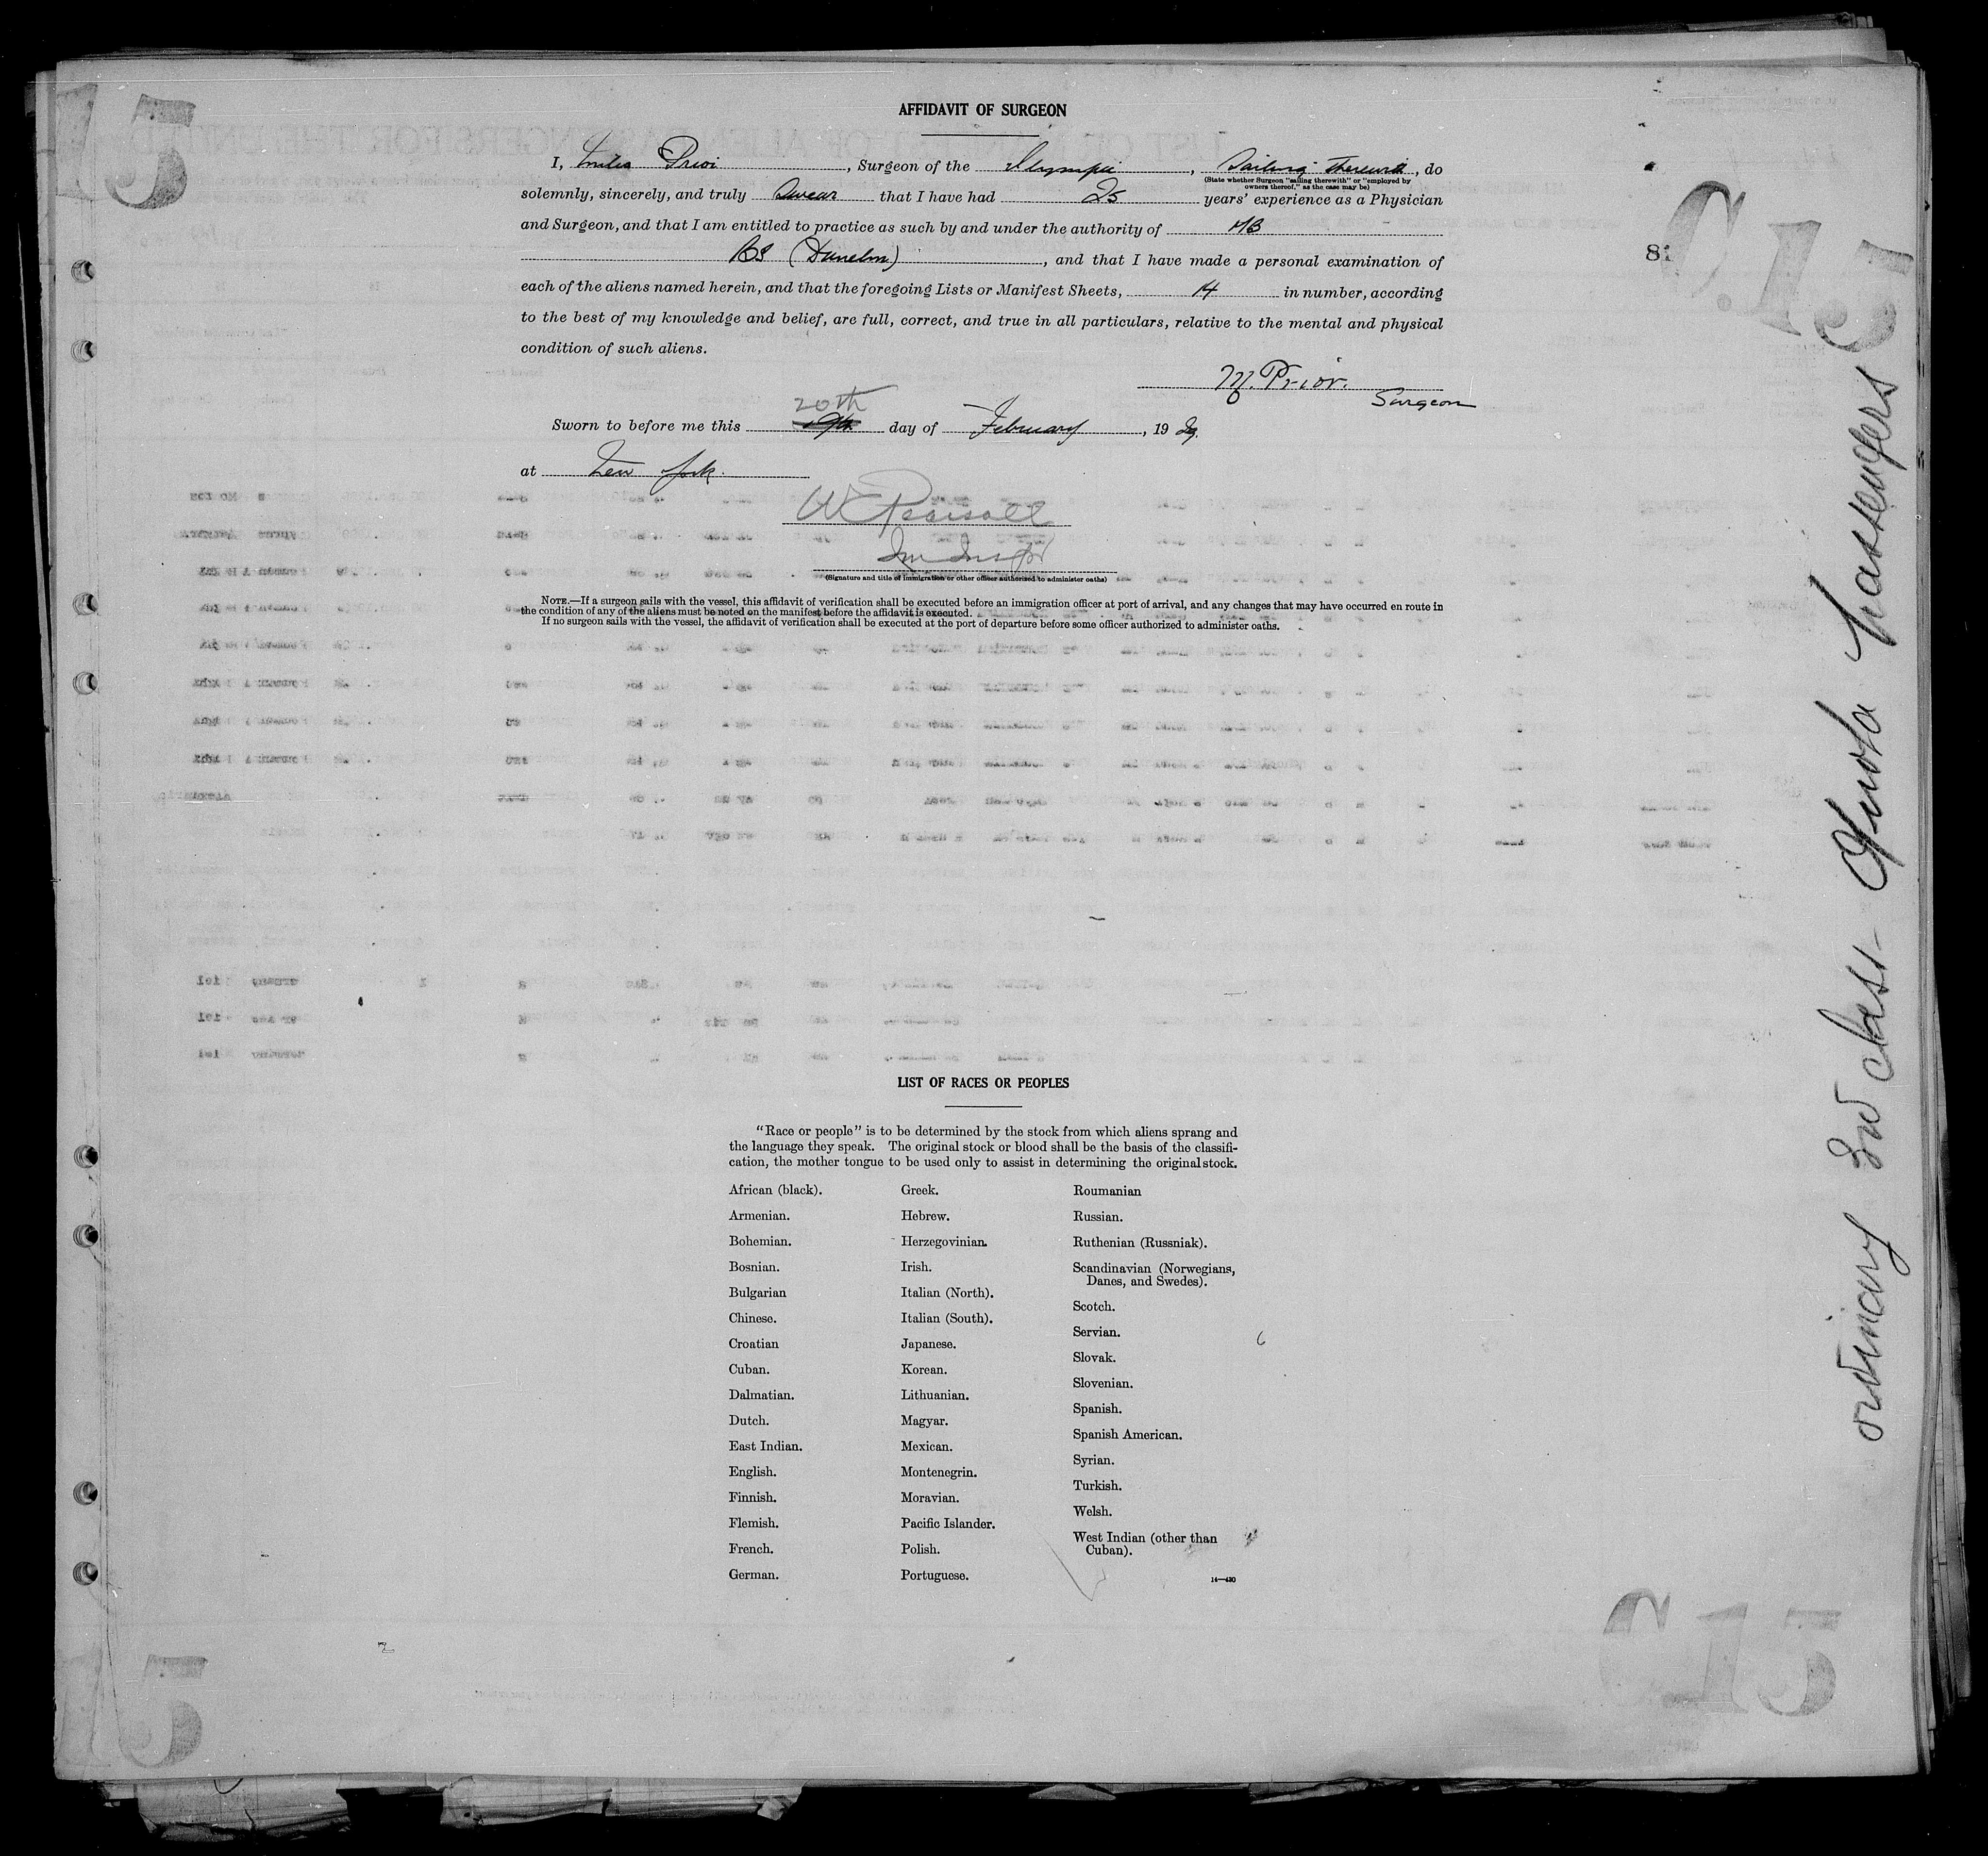 AFFIDAVIT OF SURGEON
I, Prior, Surgeon of the Olympic, Sailing therewith, do
(State whether Surgeon "sailing therewith" or "employed by
owners thereof," as the case may be)
solemnly, sincerely, and truly Swear that I have had 25 years' experience as a Physician
and Surgeon, and that I am entitled to practice as such by and under the authority of MB
BS (Dunelm), and that I have made a personal examination of
each of the aliens named herein, and that the foregoing Lists or Manifest Sheets, 14 in number, according
to the best of my knowledge and belief, are full, correct, and true in all particulars, relative to the mental and physical
condition of such aliens.
M. Prior.
Surgeon
20th
Sworn to before me this 19th day of February, 1929.
at New York.
W Pearsall
Imm Inspr
(Signature and title of immigration or other officer authorized to administer oaths)
NOTE.—If a surgeon sails with the vessel, this affidavit of verification shall be executed before an immigration officer at port of arrival, and any changes that may have occurred en route in
the condition of any of the aliens must be noted on the manifest before the affidavit is executed.
If no surgeon sails with the vessel, the affidavit of verification shall be executed at the port of departure before some officer authorized to administer oaths.
LIST OF RACES OR PEOPLES
"Race or people" is to be determined by the stock from which aliens sprang and
the language they speak. The original stock or blood shall be the basis of the classifi-
cation, the mother tongue to be used only to assist in determining the original stock.
African (black).
Armenian.
Bohemian.
Bosnian.
Bulgarian
Chinese.
Croatian
Cuban.
Dalmatian.
Dutch.
East Indian.
English.
Finnish.
Flemish.
French.
German.
Greek.
Hebrew.
Herzegovinian.
Irish.
Italian (North).
Italian (South).
Japanese.
Korean.
Lithuanian.
Magyar.
Mexican.
Montenegrin.
Moravian.
Pacific Islander.
Polish.
Portuguese.
Roumanian
Russian.
Ruthenian (Russniak).
Scandinavian (Norwegians,
Danes, and Swedes).
Scotch.
Servian.
Slovak.
Slovenian.
Spanish.
Spanish American.
Syrian.
Turkish.
Welsh.
West Indian (other than
Cuban).
14—430
81
C15
C15
15
5
ordinary 2nd class - Quota Passengers